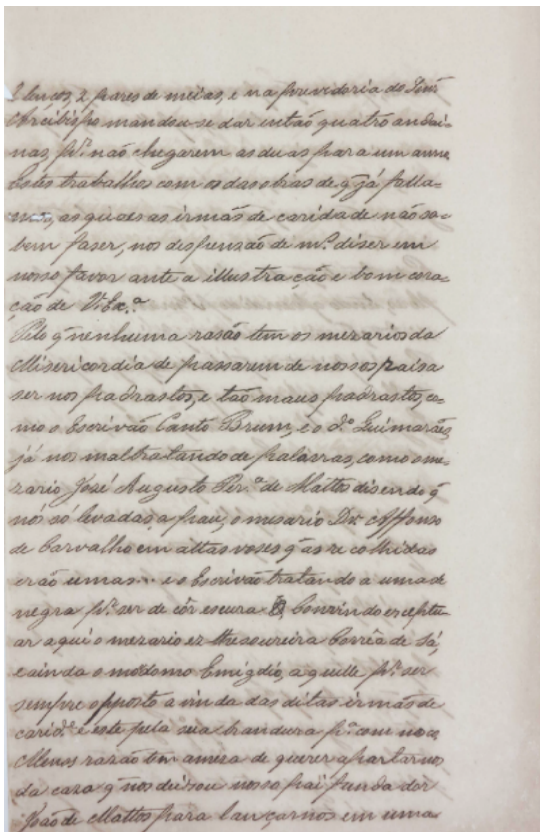 2 lenços, 2 pares de meias, e na provedoria do Dom
Arcibispo mandou-se dar então quatro andai-
nas, pr. não chegarem as duas para um anno
Estes trabalhos com os das obras de q̃ já falla-
mos, as quaes as irmãs de caridade não sa-
bem faser, nos dispensão de mto. diser em
nosso favor ante a illustração e bom cora-
ção de V. Ex.ª
Pelo q̃ nenhuma rasão tem os mezarios da
Misericordia de passarem de nossos pais a
ser nos padrastos, e tão maus padrastos, co-
mo o Escrivão Canto Brum, e o d.º Guimarães,
já nos maltratando de palavras, como o me-
zario José Augusto Per.ª de Mattos disendo q̃
nós só levadas a pau, o mesario Dr. Affonso
de Carvalho em altas voses q̃ as recolhidas
erão umas... e o Escrivão tratando a uma de
negra pr. ser de côr escura convindo exceptu-
ar aqui o mezario ex thesoureiro Corrêa de Sá,
e ainda o mordomo Emigdio, aquelle pr. ser
sempre opposto a vinda das ditas irmãs de
carid.e e este pela sua brandura p.ª com nosco
Menos razão tem a meza de querer apartar nos
da caza q̃ nos deixou nosso pai fundador
João de Mattos para lançarnos em uma